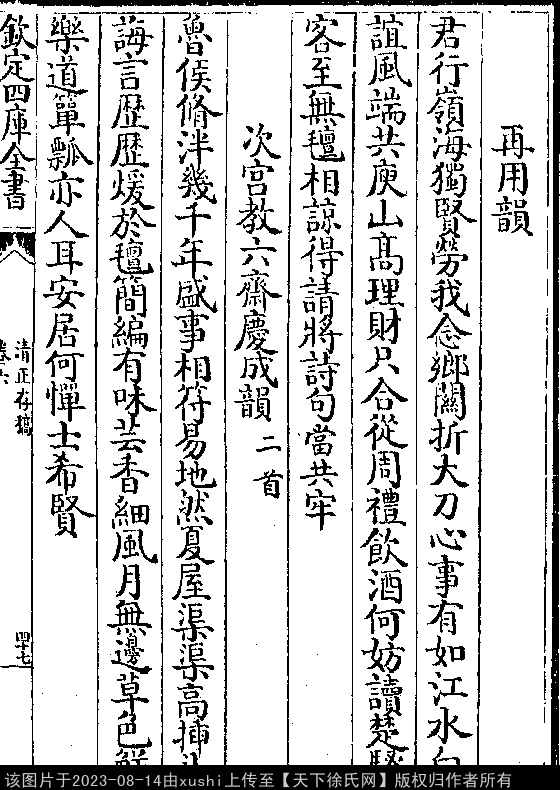 再用韻
君行嶺海獨賢勞我念鄉關折大刀心事有如江水
誼風端共庾山髙理財只合從周禮飲酒何妨讀楚
客至無氊相諒得請將詩句當共牢
次宫教六齋慶成韻二首
魯侯脩泮幾千年盛事相符易地然夏屋渠渠高揷
誨言歴歴煖於氊簡編有味芸香細風月無邊草色
樂道簞瓢亦人耳安居何憚士希賢
欽定四庫全書
清正存稿
卷六
四十七
该图片于2023-08-14由xushi上传至【天下徐氏网】版权归作者所有